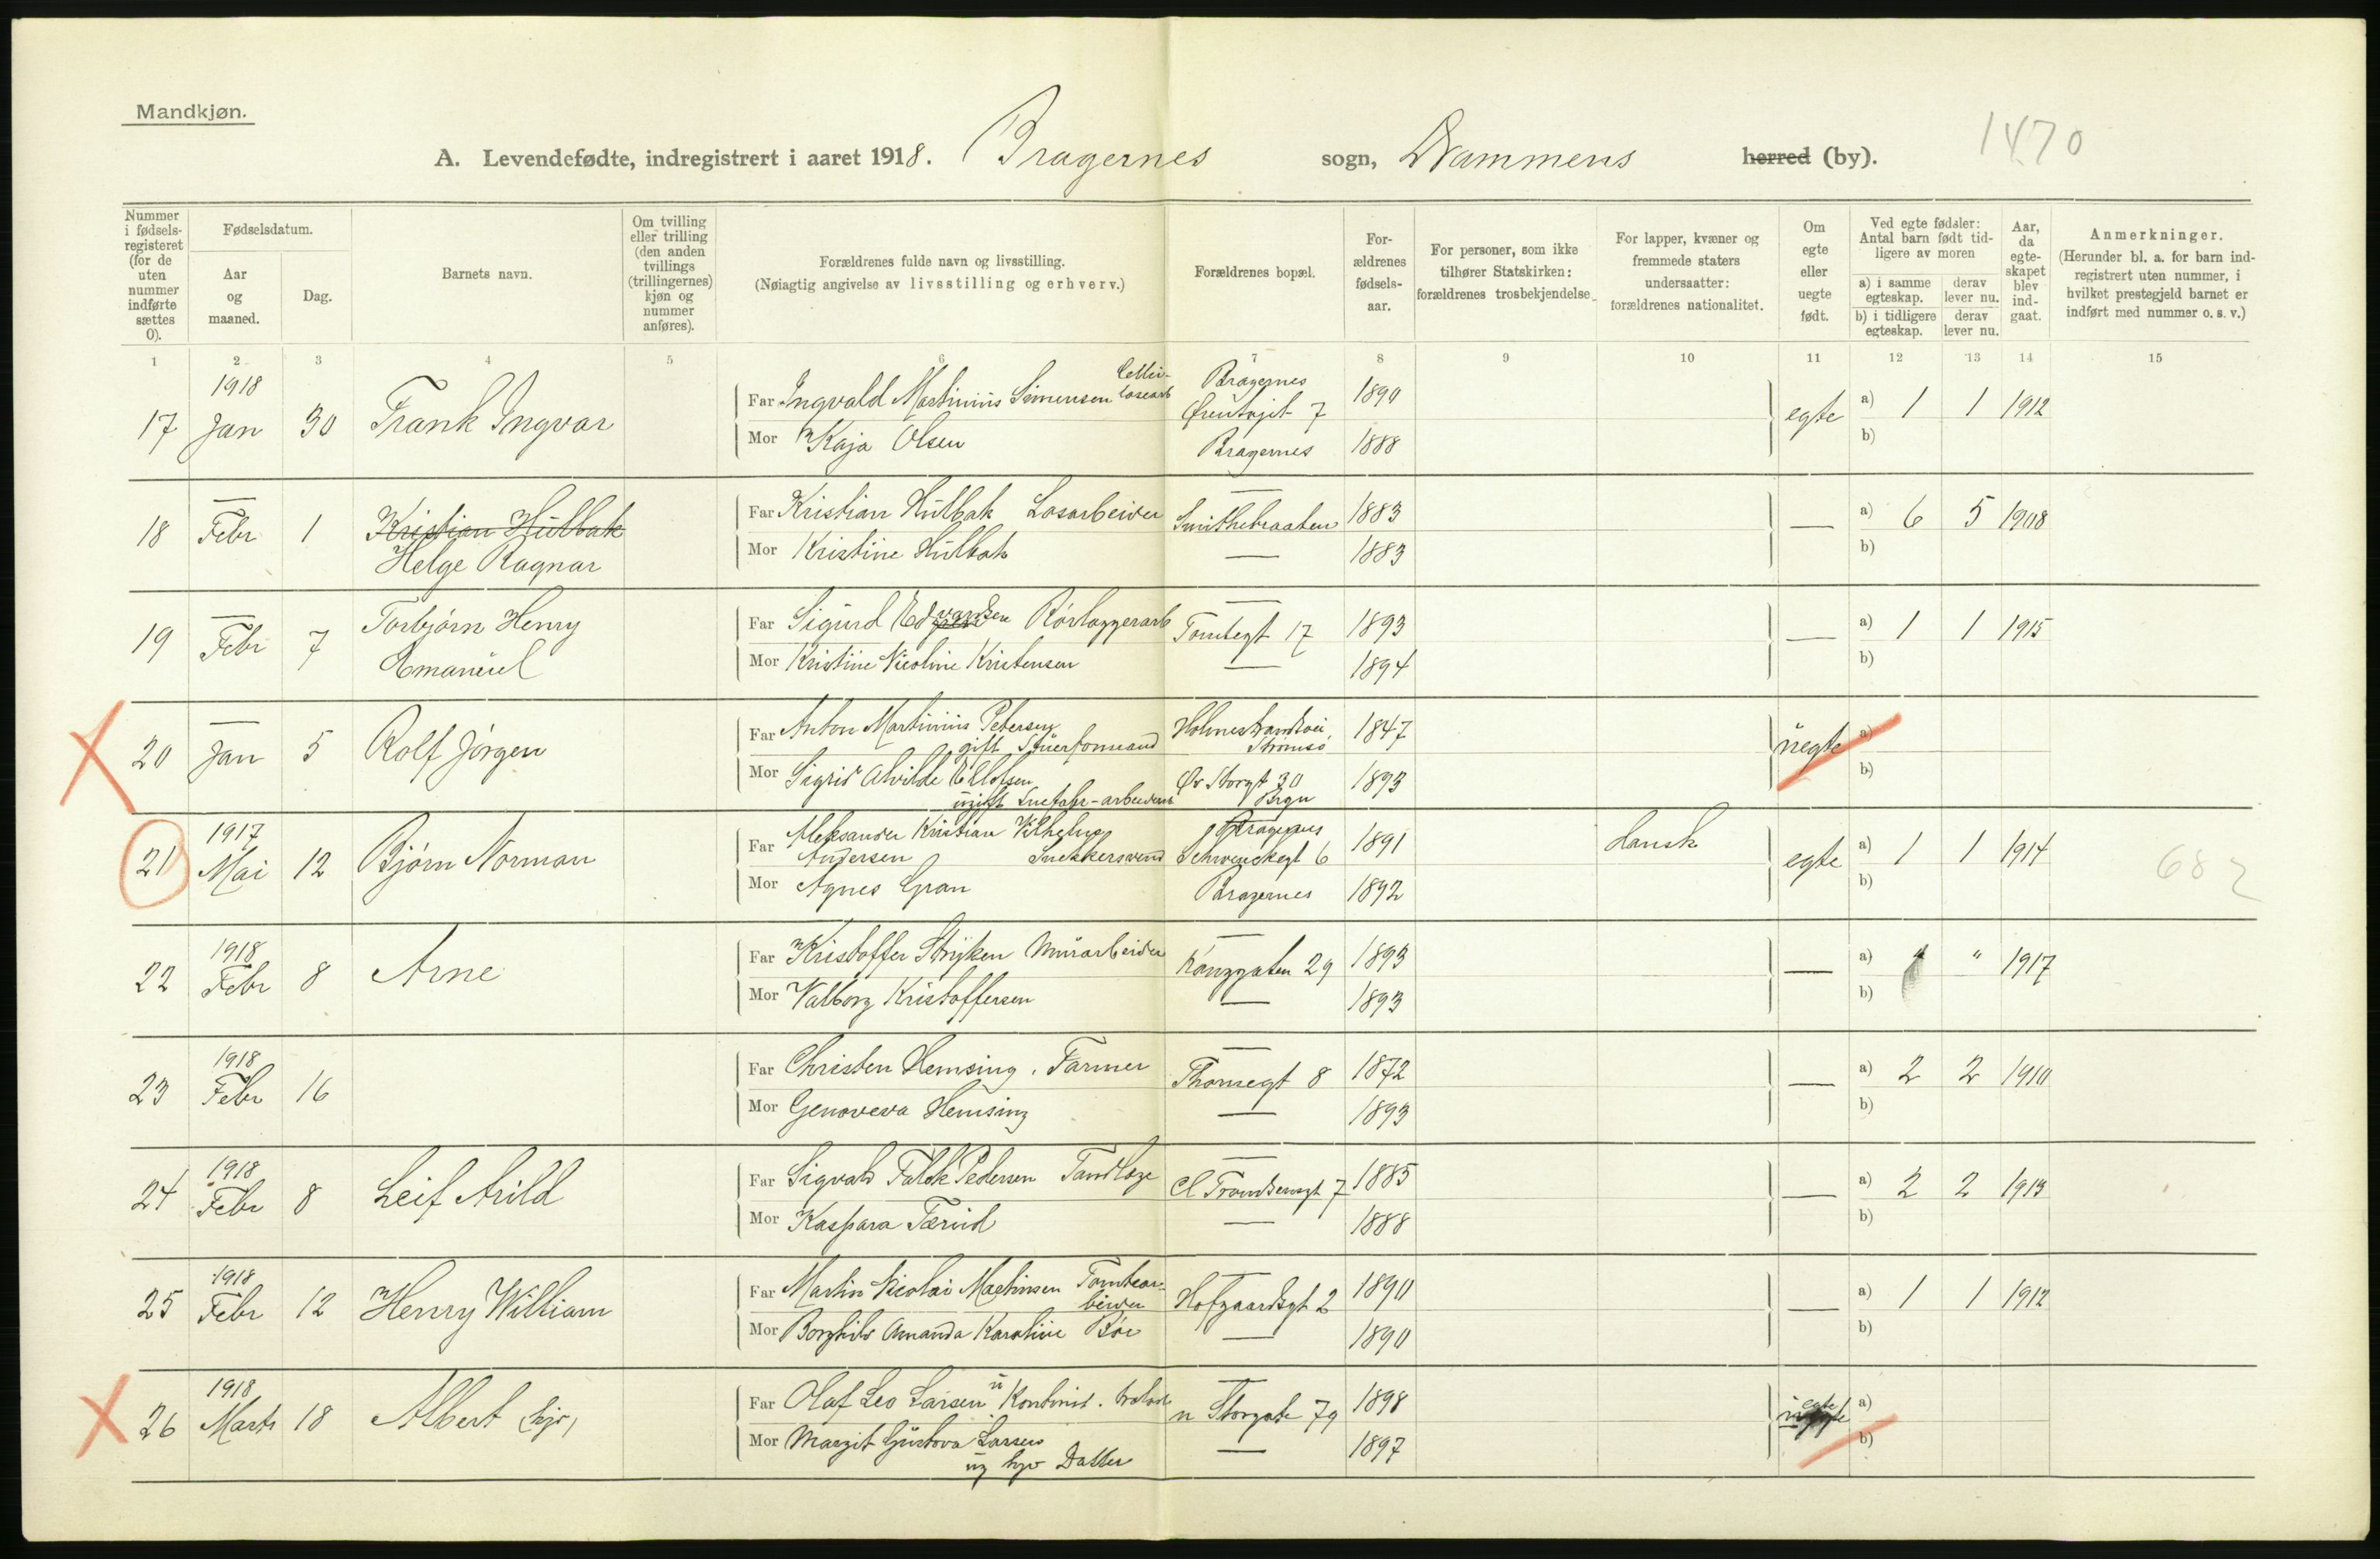 Mandkjøn.
A. Levendefødte, indregistrert i aaret 1918. Bragernes sogn, Drammens herred (by). 1470
Nummer i fødsels-registeret (for de uten nummer indførte sættes 0).
Fødselsdatum.
Aar og maaned.
Dag.
Barnets navn.
Om tvilling eller trilling (den anden tvillings (trillingernes) kjøn og nummer anføres).
Forældrenes fulde navn og livsstilling.
(Nøiagtig angivelse av livsstilling og erhverv.)
Forældrenes bopæl.
For-ældrenes fødsels-aar.
For personer, som ikke tilhører Statskirken: forældrenes trosbekjendelse.
For lapper, kvæner og fremmede staters undersaatter: forældrenes nationalitet.
Om egte eller uegte født.
Ved egte fødsler: Antal barn født tid-ligere av moren
a) i samme egteskap. derav lever nu.
b) i tidligere egteskap. derav lever nu.
Aar, da egte-skapet blev ind-gaat.
Anmerkninger.
(Herunder bl. a. for barn ind-registrert uten nummer, i hvilket prestegjeld barnet er indført med nummer o. s. v.)
1 2 3 4 5 6 7 8 9 10 11 12 13 14 15
17 1918 Jan 30 Frank Ingvar
Far Ingvald Martinius Simensen Bragernes 7 1890 egte a) 1 1 1912
Mor Kaja Olsen Bragernes 1888 b)
18 — Febr 1 Kristian Hulbak Helge Ragnar
Far Kristian Hulbak Losarbeider — Smithebraaten 1883 — a) 6 5 1908
Mor Kristine Hulbak — 1883 b)
19 — Febr 7 Torbjørn Henry Emanuel
Far Sigurd Edvardsen Rørlæggerarb — Tomtegt 17 1893 — a) 1 1 1915
Mor Kristine Nicoline Kristensen — 1894 b)
20 — Jan 5 Rolf Jørgen
Far Anton Martinius Petersen gift Holmestrandsvei Strømsø 1847 uegte a)
Mor Sigrid Alvilde Ellefsen ugift Ør Storgt 30 Brgn 1893 b)
21 1917 Mai 12 Bjørn Norman
Far Aleksander Kristian Vilhelm Andersen Snekkersvend Bragernes Schwenckegt 6 1891 Dansk egte a) 1 1 1914 682
Mor Agnes Gran Bragernes 1892 b)
22 1918 Febr 8 Arne
Far Kristoffer Stryken Murarbeider — 29 1893 — a) " 1917
Mor Valborg Kristoffersen — 1893 b)
23 1918 Febr 16
Far Christen Hemsing, Farmer — Thomegt 8 1872 — a) 2 2 1910
Mor Genoveva Hemsing — 1893 b)
24 1918 Febr 8 Leif Arild
Far Sigvald Falck Pedersen Tandlæge — Cl Tromsensgt 7 1885 — a) 2 2 1913
Mor Kaspara Tærud — 1888 b)
25 1918 Febr 12 Henry William
Far Martin Nicolai Martinsen Tomtearbeider — Hofgaardsgt 2 1890 — a) 1 1 1912
Mor Borghild Amanda Karoline Bøe — 1890 b)
26 1918 Marts 18 Albert
Far Olaf Leo Larsen u Kontorist — n Storgate 79 1898 a)
Mor Margit Gustova Larsen ug hjv Datter — 1897 b)